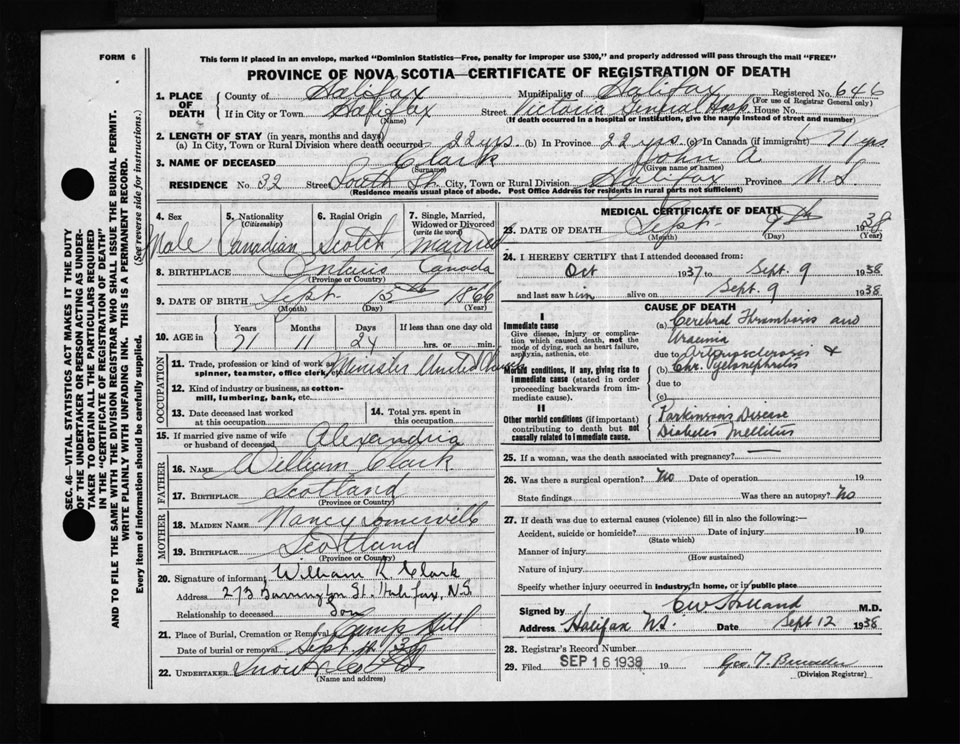 FORM 6
This form if placed in an envelope, marked "Dominion Statistics—Free, penalty for improper use $300," and properly addressed will pass through the mail "FREE"
PROVINCE OF NOVA SCOTIA—CERTIFICATE OF REGISTRATION OF DEATH
1. PLACE OF DEATH County of Halifax Municipality of Halifax Registered No. 646
(For use of Registrar General only)
If in City or Town Halifax Street Victoria General Hosp. House No.
(Name) (If death occurred in a hospital or institution, give the name instead of street and number)
2. LENGTH OF STAY (in years, months and days)
(a) In City, Town or Rural Division where death occurred 22 yrs. (b) In Province 22 yrs. (c) In Canada (if immigrant) 71 yrs
3. NAME OF DECEASED Clark John A
(Given name or names)
RESIDENCE No. 32 Street South St. City, Town or Rural Division Halifax Province N.S.
(Residence means usual place of abode. Post Office Address for residents in rural parts not sufficient)
4. Sex Male
5. Nationality (Citizenship) Canadian
6. Racial Origin Scotch
7. Single, Married, Widowed or Divorced (write the word) Married
8. BIRTHPLACE Ontario Canada
(Province or Country)
9. DATE OF BIRTH Sept. 15th 1866
(Month) (Day) (Year)
10. AGE in Years Months Days If less than one day old
71 11 24 hrs. or min.
OCCUPATION
11. Trade, profession or kind of work as spinner, teamster, office clerk, etc. Minister United Church
12. Kind of industry or business, as cotton-mill, lumbering, bank, etc.
13. Date deceased last worked at this occupation
14. Total yrs. spent in this occupation
15. If married give name of wife or husband of deceased Alexandria
FATHER
16. NAME William Clark
17. BIRTHPLACE Scotland
(Province or Country)
MOTHER
18. MAIDEN NAME Nancy Somerville
19. BIRTHPLACE Scotland
(Province or Country)
20. Signature of informant William R. Clark
Address 273 Barrington St. Halifax, N.S.
Relationship to deceased Son
21. Place of Burial, Cremation or Removal Camp Hill
Date of burial or removal Sept. 19
22. UNDERTAKER Snow & Co Ltd
(Name and address)
MEDICAL CERTIFICATE OF DEATH
23. DATE OF DEATH Sept. 9th 1938
(Month) (Day) (Year)
24. I HEREBY CERTIFY that I attended deceased from:
Oct 1937 to Sept. 9 1938
and last saw him alive on Sept. 9 1938
CAUSE OF DEATH
I
Immediate cause
Give disease, injury or complication which caused death, not the mode of dying, such as heart failure, asphyxia, asthenia, etc
(a) Cerebral Thrombosis and Uraemia
due to Arteriosclerosis &
Morbid conditions, if any, giving rise to immediate cause (stated in order proceeding backwards from immediate cause).
(b) Chr. Pyelonephritis
due to
(c)
II
Other morbid conditions (if important) contributing to death but not causally related to immediate cause.
Parkinsons Disease
Diabetes Mellitus
25. If a woman, was the death associated with pregnancy? —
26. Was there a surgical operation? No Date of operation 19
State findings Was there an autopsy? No
27. If death was due to external causes (violence) fill in also the following:—
Accident, suicide or homicide? Date of injury 19
(State which)
Manner of injury
(How sustained)
Nature of injury
Specify whether injury occurred in industry, in home, or in public place
Signed by C W Holland M.D.
Address Halifax N.S. Date Sept 12 1938
28. Registrar's Record Number
29. Filed SEP 16 1938 19
(Division Registrar)
SEC. 46—VITAL STATISTICS ACT MAKES IT THE DUTY
OF THE UNDERTAKER OR PERSON ACTING AS UNDER-
TAKER TO OBTAIN ALL THE PARTICULARS REQUIRED
IN THE "CERTIFICATE OF REGISTRATION OF DEATH"
AND TO FILE THE SAME WITH THE DIVISION REGISTRAR WHO SHALL ISSUE THE BURIAL PERMIT.
WRITE PLAINLY WITH UNFADING INK. THIS IS A PERMANENT RECORD.
Every item of information should be carefully supplied. (See reverse side for instructions.)